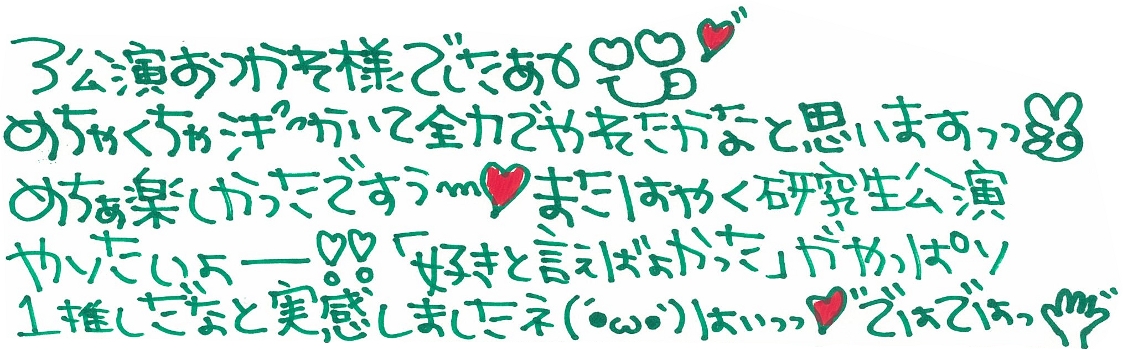 3公演おつかれ様でしたあ
めちゃくちゃ汗かいて全力でやれたかなと思いますっっ
めちゃ楽しかったですぅ〰♥またはやく研究生公演
やりたいよー♡♡「好きと言えばよかった」がやっぱり
1推しだなと実感しましたネ(´•ω•`)はいっっ♥ではではっ